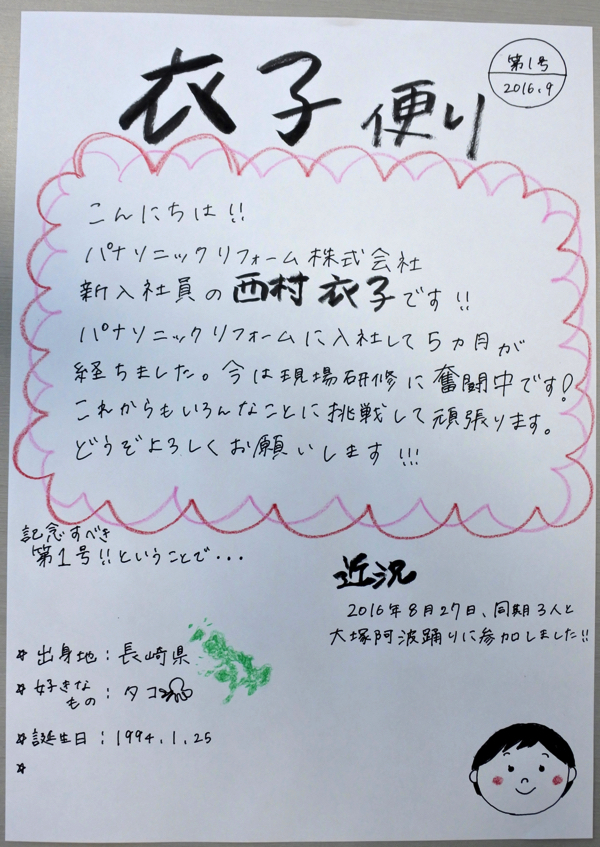 衣子便り
第1号
2016.9
こんにちは!!
パナソニックリフォーム株式会社
新入社員の西村衣子です!!
パナソニックリフォームに入社して5カ月が
経ちました。今は現場研修に奮闘中です!
これからもいろんなことに挑戦して頑張ります。
どうぞよろしくお願いします!!!
記念すべき
第1号!!ということで・・・
近況
2016年8月27日、同期3人と
大塚阿波踊りに参加しました!!
☆出身地:長崎県
☆好きな
もの:タコ
☆誕生日:1994.1.25
☆